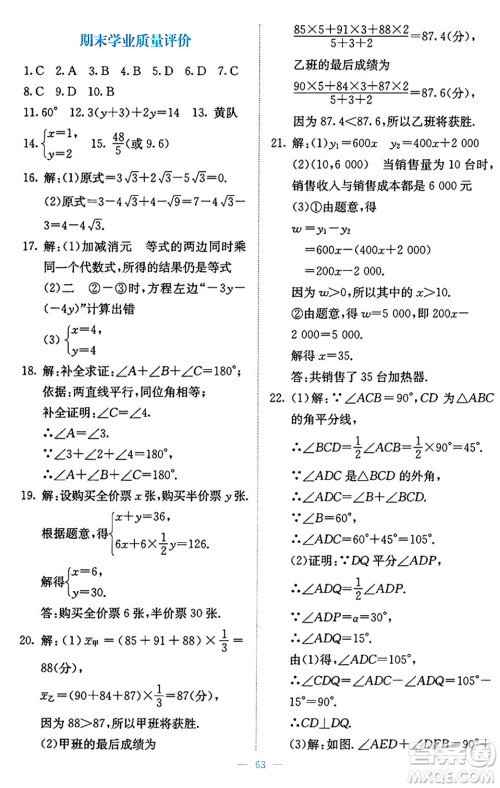 期末学业质量评价
1.C 2.A 3.B 4.A 5.D 6.D 7.C
8.C 9.D 10.B
11.60° 12.3(y+3)+2y=14 13.黄队
14.{x=1, y=2 15.48/5(或 9.6)
16.解:(1)原式=3√3+2√3-5√3=0.
(2)原式=3-4√3-9+4√3-1+
3-4=-8.
17.解:(1)加减消元 等式的两边同时乘
同一个代数式,所得的结果仍是等式
(2)二 ②-③时,方程左边“-3y-
(-4y)”计算出错
(3){x=4, y=4
18.解:补全求证:∠A+∠B+∠C=180°;
依据:两直线平行,同位角相等.
补全证明:∠A+∠B+∠C
∴∠A=∠2,∠B=∠3.
∵∠2+∠3+∠4=180°,
∴∠A+∠B+∠C=180°.
19.解:设购买全价票 x 张,半价票 y 张.
根据题意,得{x+y=36, 6x+6×1/2y=126.
解得{x=6, y=30.
答:购买全价票 6 张,半价票 30 张.
20.解:(1)x̄甲=(85+91+88)×1/3=
88(分),
x̄乙=(90+84+87)×1/3=87(分),
因为 88>87,所以甲班将获胜.
(2)甲班的最后成绩为
(85×5+91×3+88×2)/(5+3+2)=87.4(分),
乙班的最后成绩为
(90×5+84×3+87×2)/(5+3+2)=87.6(分),
因为 87.4<87.6,所以乙班将获胜.
21.解:(1)y₁=600x y₂=400x+2 000
(2)(10,6000) 当销售量为 10 台时,
销售收入与销售成本都是 6 000 元
(3)①由题意,得
w=y₁-y₂
=600x-(400x+2 000)
=200x-2 000.
因为 w>0,所以其中的 x>10.
②由题意,得 w=5 000,所以 200x-
2 000=5 000.
解得 x=35.
答:共销售了 35 台加热器.
22.(1)解:∵∠ACB=90°,CD 为∠ACB
的角平分线,
∴∠BCD=1/2∠ACB=45°.
∵∠ADC 是△BCD 的外角,
∴∠ADC=∠B+∠BCD.
∴∠ADC=60°+45°=105°.
(2)证明:∵DQ 平分∠ADP,
∴∠ADQ=1/2∠ADP.
∵∠ADP=α=30°,
∴∠ADQ=15°.
由(1)得∠ADC=105°,
∴∠CDQ=∠ADC-∠ADQ=90°.
∴CD⊥DQ.
(3)解:如图.∠AED+∠DFB=90°+
63